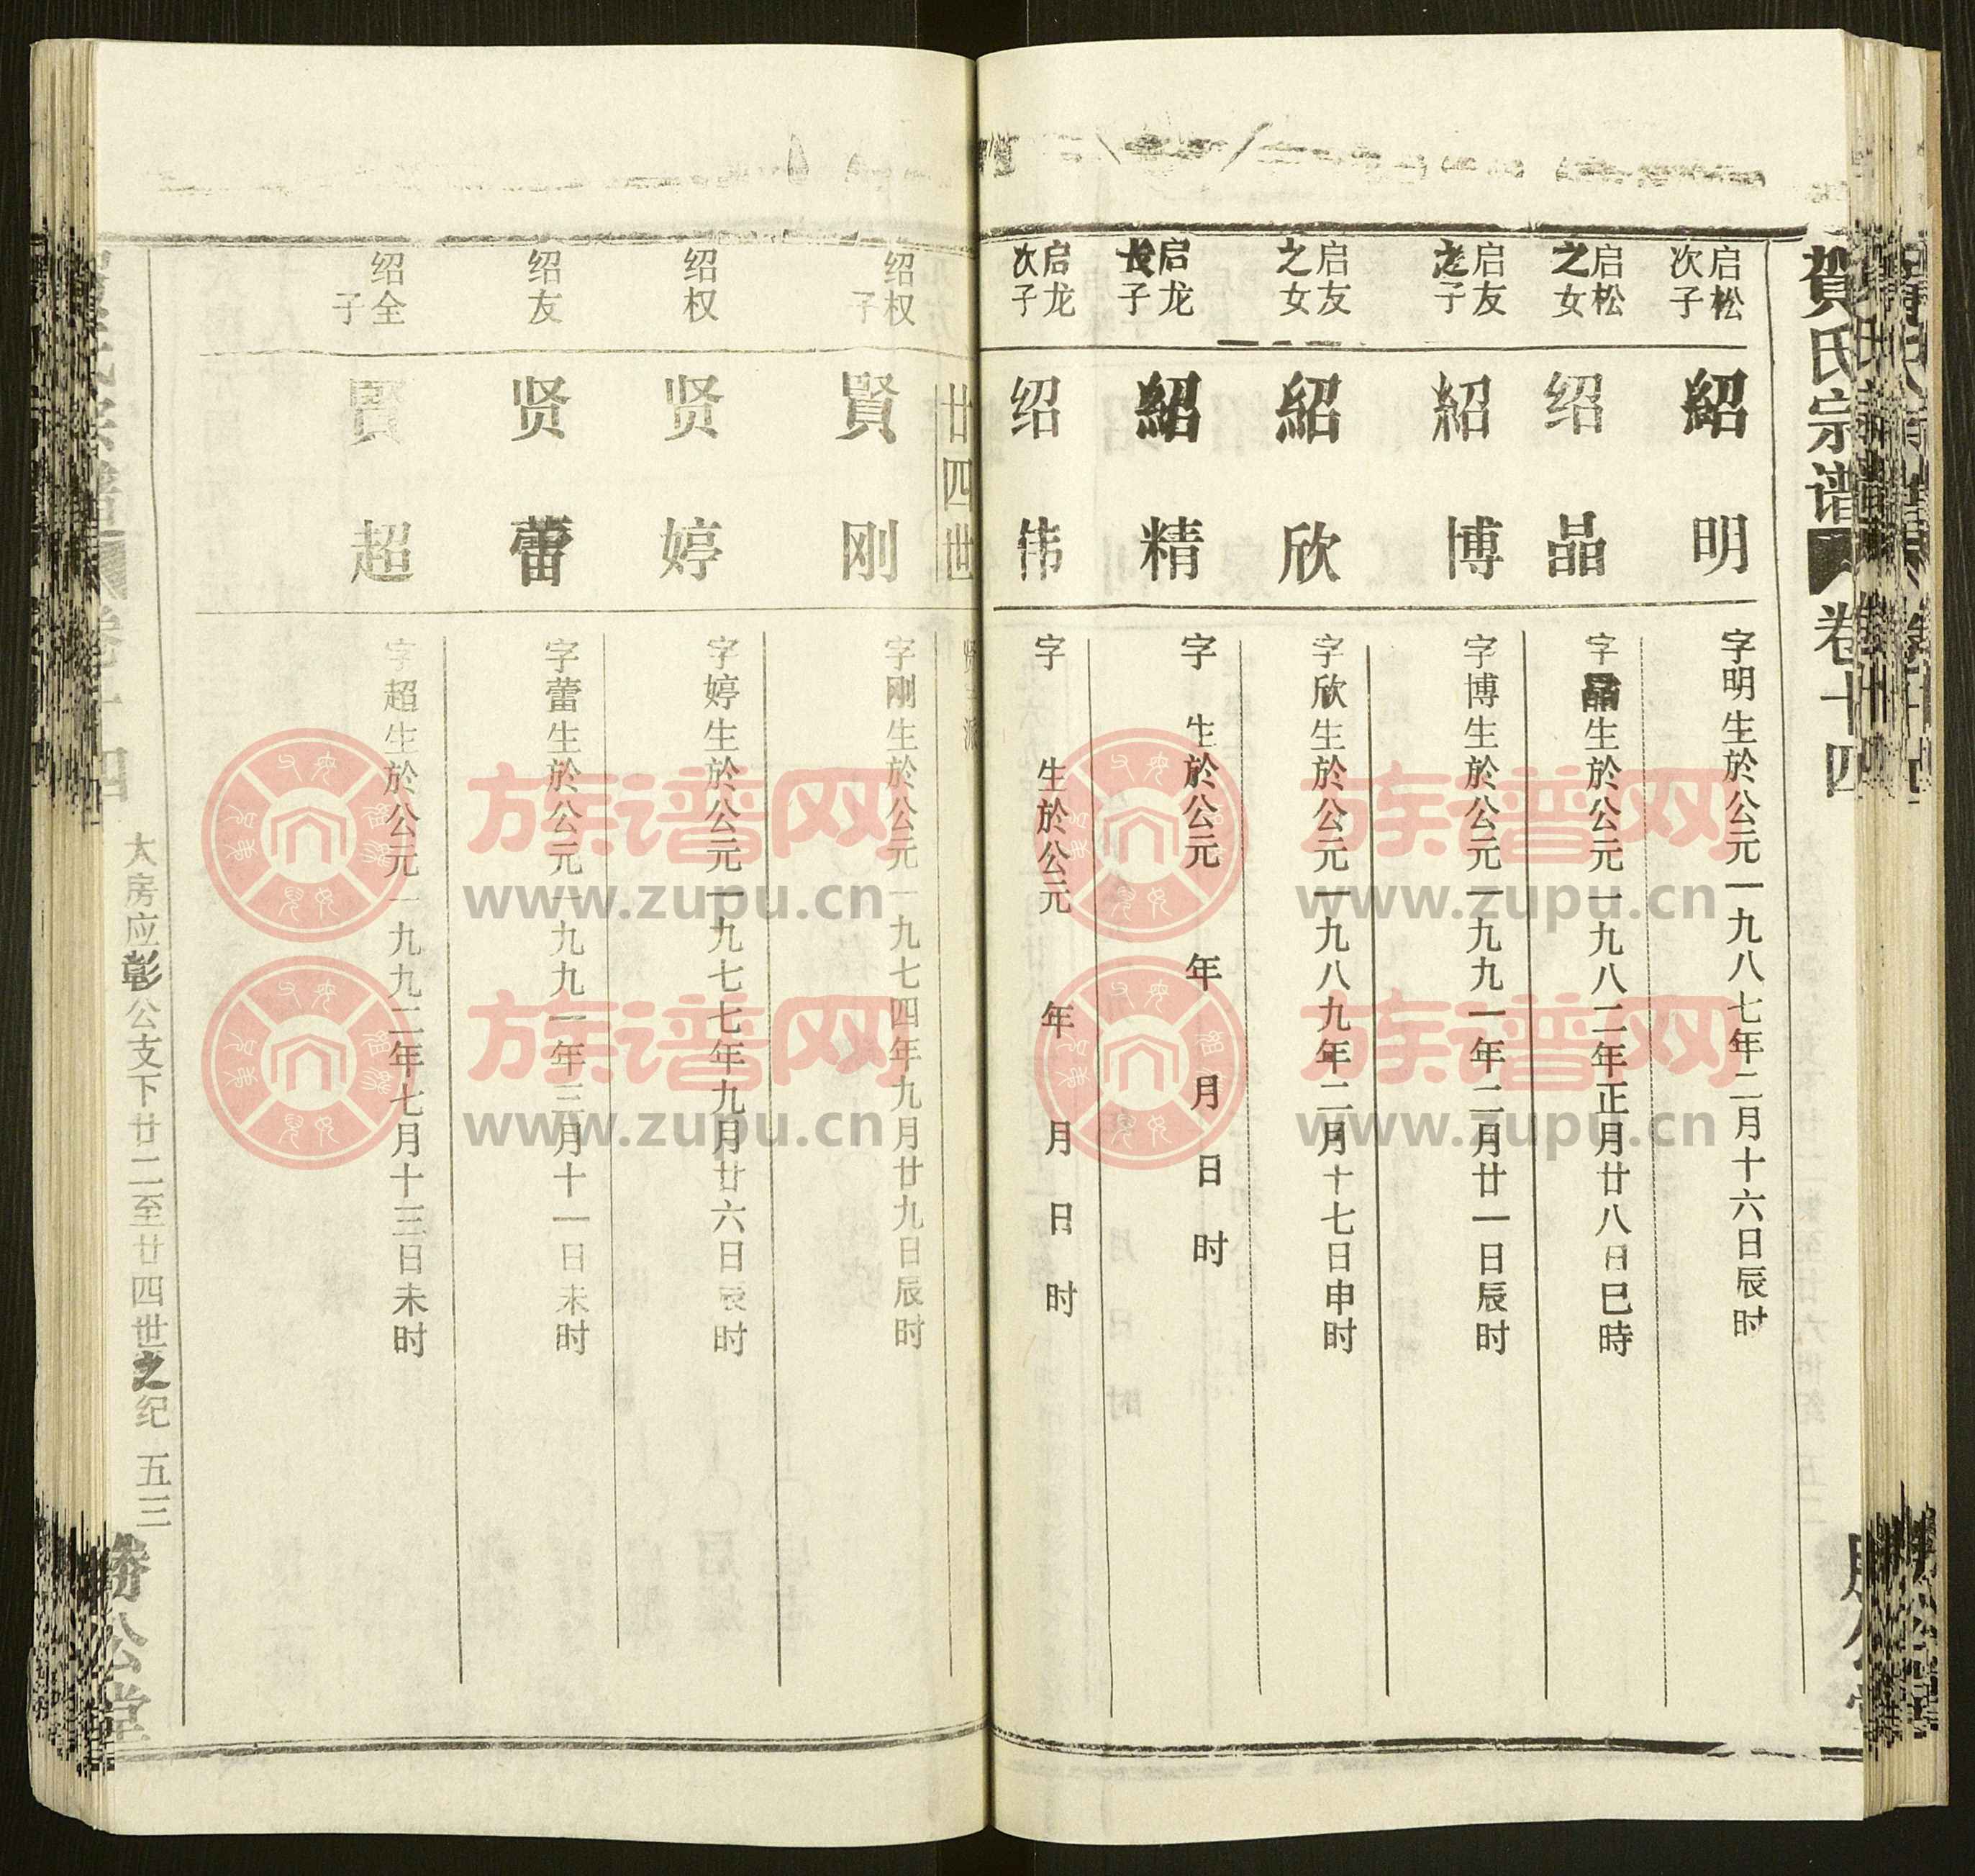 賀氏宗谱 卷十四
启松
次子
紹明
字明生於公元一九八七年二月十六日辰时
启松
之女
绍晶
字晶生於公元一九八二年正月廿八日巳時
启友
之子
紹博
字博生於公元一九九一年二月廿一日辰时
启友
之女
紹欣
字欣生於公元一九八九年二月十七日申时
启龙
长子
紹精
字 生於公元 年 月 日 时
启龙
次子
绍伟
字 生於公元 年 月 日 时
廿四世
绍权
子
賢刚
字刚生於公元一九七四年九月廿九日辰时
绍权
贤婷
字婷生於公元一九七七年九月廿六日辰时
绍友
贤蕾
字蕾生於公元一九九一年三月十一日未时
绍全
子
賢超
字超生於公元一九九二年七月十三日未时
大房应彰公支下廿二至廿四世之纪 五三
勝公堂
族谱网
www.zupu.cn
族谱网
www.zupu.cn
族谱网
www.zupu.cn
族谱网
www.zupu.cn